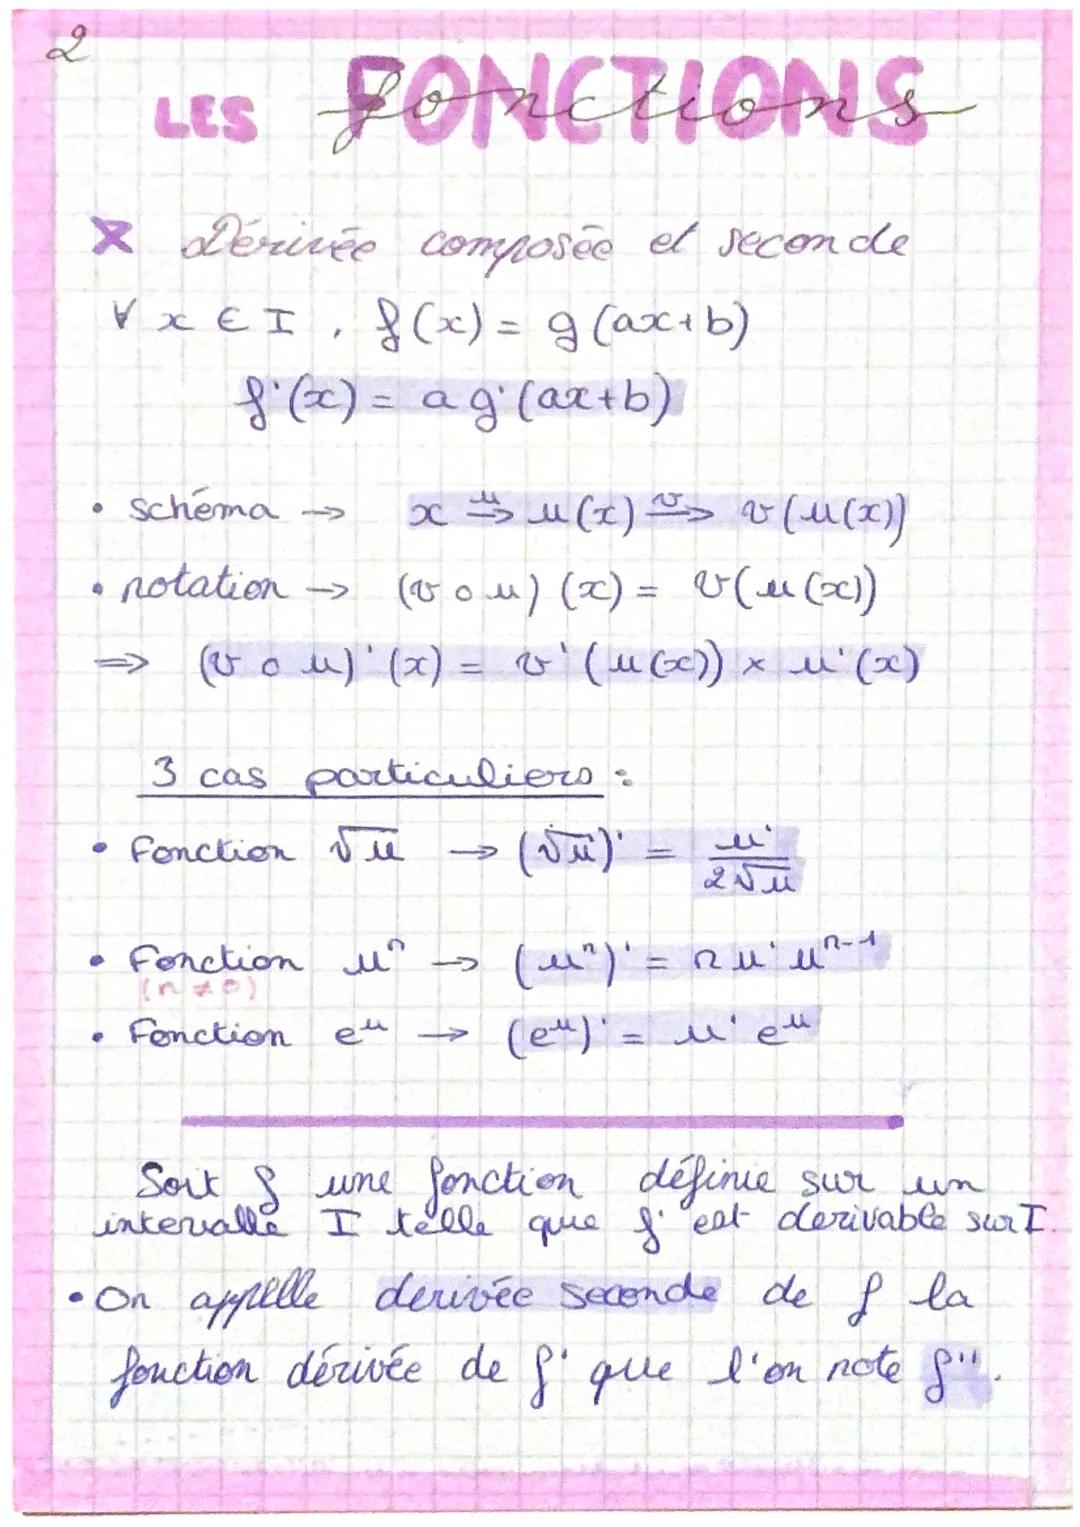 2
LES FONCTIONS
fonctions
x Dérivée composée et seconde
∀ x ∈ I, f(x) = g(ax+b)
f'(x) = a g'(ax+b)
• schéma → x —u→ u(x) —v→ v(u(x))
• notation → (v ∘ u)(x) = v(u(x))
⇒ (v ∘ u)'(x) = v'(u(x)) × u'(x)
3 cas particuliers :
• Fonction √u → (√u)' = u'/2√u
• Fonction uⁿ → (uⁿ)' = n u' uⁿ⁻¹
(n ≠ 0)
• Fonction eᵘ → (eᵘ)' = u' eᵘ
Soit f une fonction définie sur un
intervalle I telle que f' est derivable sur I.
• On appelle derivée seconde de f la
fonction dérivée de f' que l'on note f''.